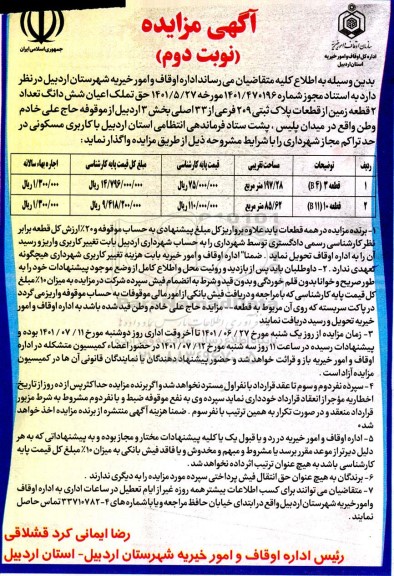 جمهوری اسلامی ایران
آگهی مزایده
(نوبت دوم)
سازمان اوقاف و امور خیریه
اداره کل اوقاف و امور خیریه
استان اردبیل
بدین وسیله به اطلاع کلیه متقاضیان می رساند اداره اوقاف و امور خیریه شهرستان اردبیل در نظر
دارد به استناد مجوز شماره ۱۴۰۱/۴۷۰۱۹۶ مورخه ۱۴۰۱/۵/۲۷ حق تملک اعیان شش دانگ تعداد
۲ قطعه زمین از قطعات پلاک ثبتی ۲۰۹ فرعی از ۳۳ اصلی بخش ۳ اردبیل از موقوفه حاج علی خادم
وطن واقع در میدان پلیس ، پشت ستاد فرماندهی انتظامی استان اردبیل با کاربری مسکونی در
حد تراکم مجاز شهرداری را با شرایط مشروحه ذیل از طریق مزایده واگذار نماید :
ردیف توضیحات مساحت تقریبی قیمت پایه کارشناسی مبلغ کل قیمت پایه کارشناسی اجاره بهاء سالانه
۱ قطعه ۳ (B ۴) ۱۹۷/۲۸ متر مربع ۷۵/۰۰۰/۰۰۰ ریال ۱۴/۷۹۶/۰۰۰/۰۰۰ ریال ۱/۳۰۰/۰۰۰ ریال
۲ قطعه ۱۰ (B ۱۱) ۸۵/۶۲ متر مربع ۱۱۰/۰۰۰/۰۰۰ ریال ۹/۴۱۸/۲۰۰/۰۰۰ ریال ۱/۳۰۰/۰۰۰ ریال
۱- برنده مزایده در همه قطعات باید علاوه بر واریز کل مبلغ پیشنهادی به حساب موقوفه و ۲۰٪ ارزش کل قطعه برابر
نظر کارشناس رسمی دادگستری توسط شهرداری را به حساب شهرداری اردبیل بابت تغییر کاربری واریز و رسید
آن را به اداره اوقاف تحویل نماید . ضمنا" اداره اوقاف و امور خیریه بابت هزینه تغییر کاربری شهرداری هیچگونه
تعهدی ندارد . ۲- داوطلبان باید پس از بازدید و روئیت محل و اطلاع کامل از وضع موجود پیشنهادات خود را به
طور صریح و خوانا بدون قلم خوردگی و بدون قید و شرط به انضمام فیش سپرده شرکت در مزایده به میزان ۱۰٪ مبلغ
کل قیمت پایه کارشناسی که با مراجعه و دریافت فیش بانکی از امور مالی موقوفات به حساب موقوفه واریز می گردد
در پاکت سربسته که روی آن مربوط به قطعه ... مزایده حاج علی خادم وطن قید شده باشد به اداره اوقاف و امور
خیریه تحویل و رسید دریافت نمایند .
۳- زمان مزایده از روز یک شنبه مورخ ۱۴۰۱/۰۶/۲۷ تا آخر وقت اداری روز دوشنبه مورخ ۱۴۰۱/۰۷/۱۱ بوده و
پیشنهادات رسیده در ساعت ۱۱ روز سه شنبه مورخ ۱۴۰۱/۰۷/۱۲ در حضور اعضاء کمیسیون متشکله در اداره
اوقاف و امور خیریه باز و قرائت خواهد شد و حضور پیشنهاد دهندگان یا نمایندگان قانونی آن ها در کمیسیون
مزایده آزاد است .
۴- سپرده نفر دوم و سوم تا عقد قرارداد با نفر اول مسترد نخواهد شد و اگر برنده مزایده حداکثر پس از ده روز از تاریخ
اخطاریه مؤجر از انعقاد قرارداد خودداری نماید سپرده وی به نفع موقوفه ضبط و با نفر دوم مشروط به شرط مزبور
قرارداد منعقد و در صورت تکرار به همین ترتیب با نفر سوم . ضمنا هزینه آگهی منتشره از برنده مزایده اخذ خواهد
شد .
۵- اداره اوقاف و امور خیریه در رد یا قبول یک یا کلیه پیشنهادات مختار و مجاز بوده و به پیشنهاداتی که به هر
دلیل دیرتر از موعد مقرر برسد یا مشروط و مبهم و مخدوش و یا فاقد فیش بانکی به میزان ۱۰٪ مبلغ کل قیمت پایه
کارشناسی باشد به هیچ عنوان ترتیب اثر داده نخواهد شد .
۶- برندگان به هیچ عنوان حق انتقال فیش پرداختی سپرده مورد مزایده را به دیگری ندارند .
۷- متقاضیان می توانند برای کسب اطلاعات بیشتر همه روزه غیر از ایام تعطیل در ساعات اداری به اداره اوقاف
و امور خیریه شهرستان اردبیل واقع در ابتدای خیابان حافظ مراجعه و یا با شماره های ۴-۳۳۷۱۰۷۸۲ تماس حاصل
نمایند .
رضا ایمانی کرد قشلاقی
رئیس اداره اوقاف و امور خیریه شهرستان اردبیل- استان اردبیل